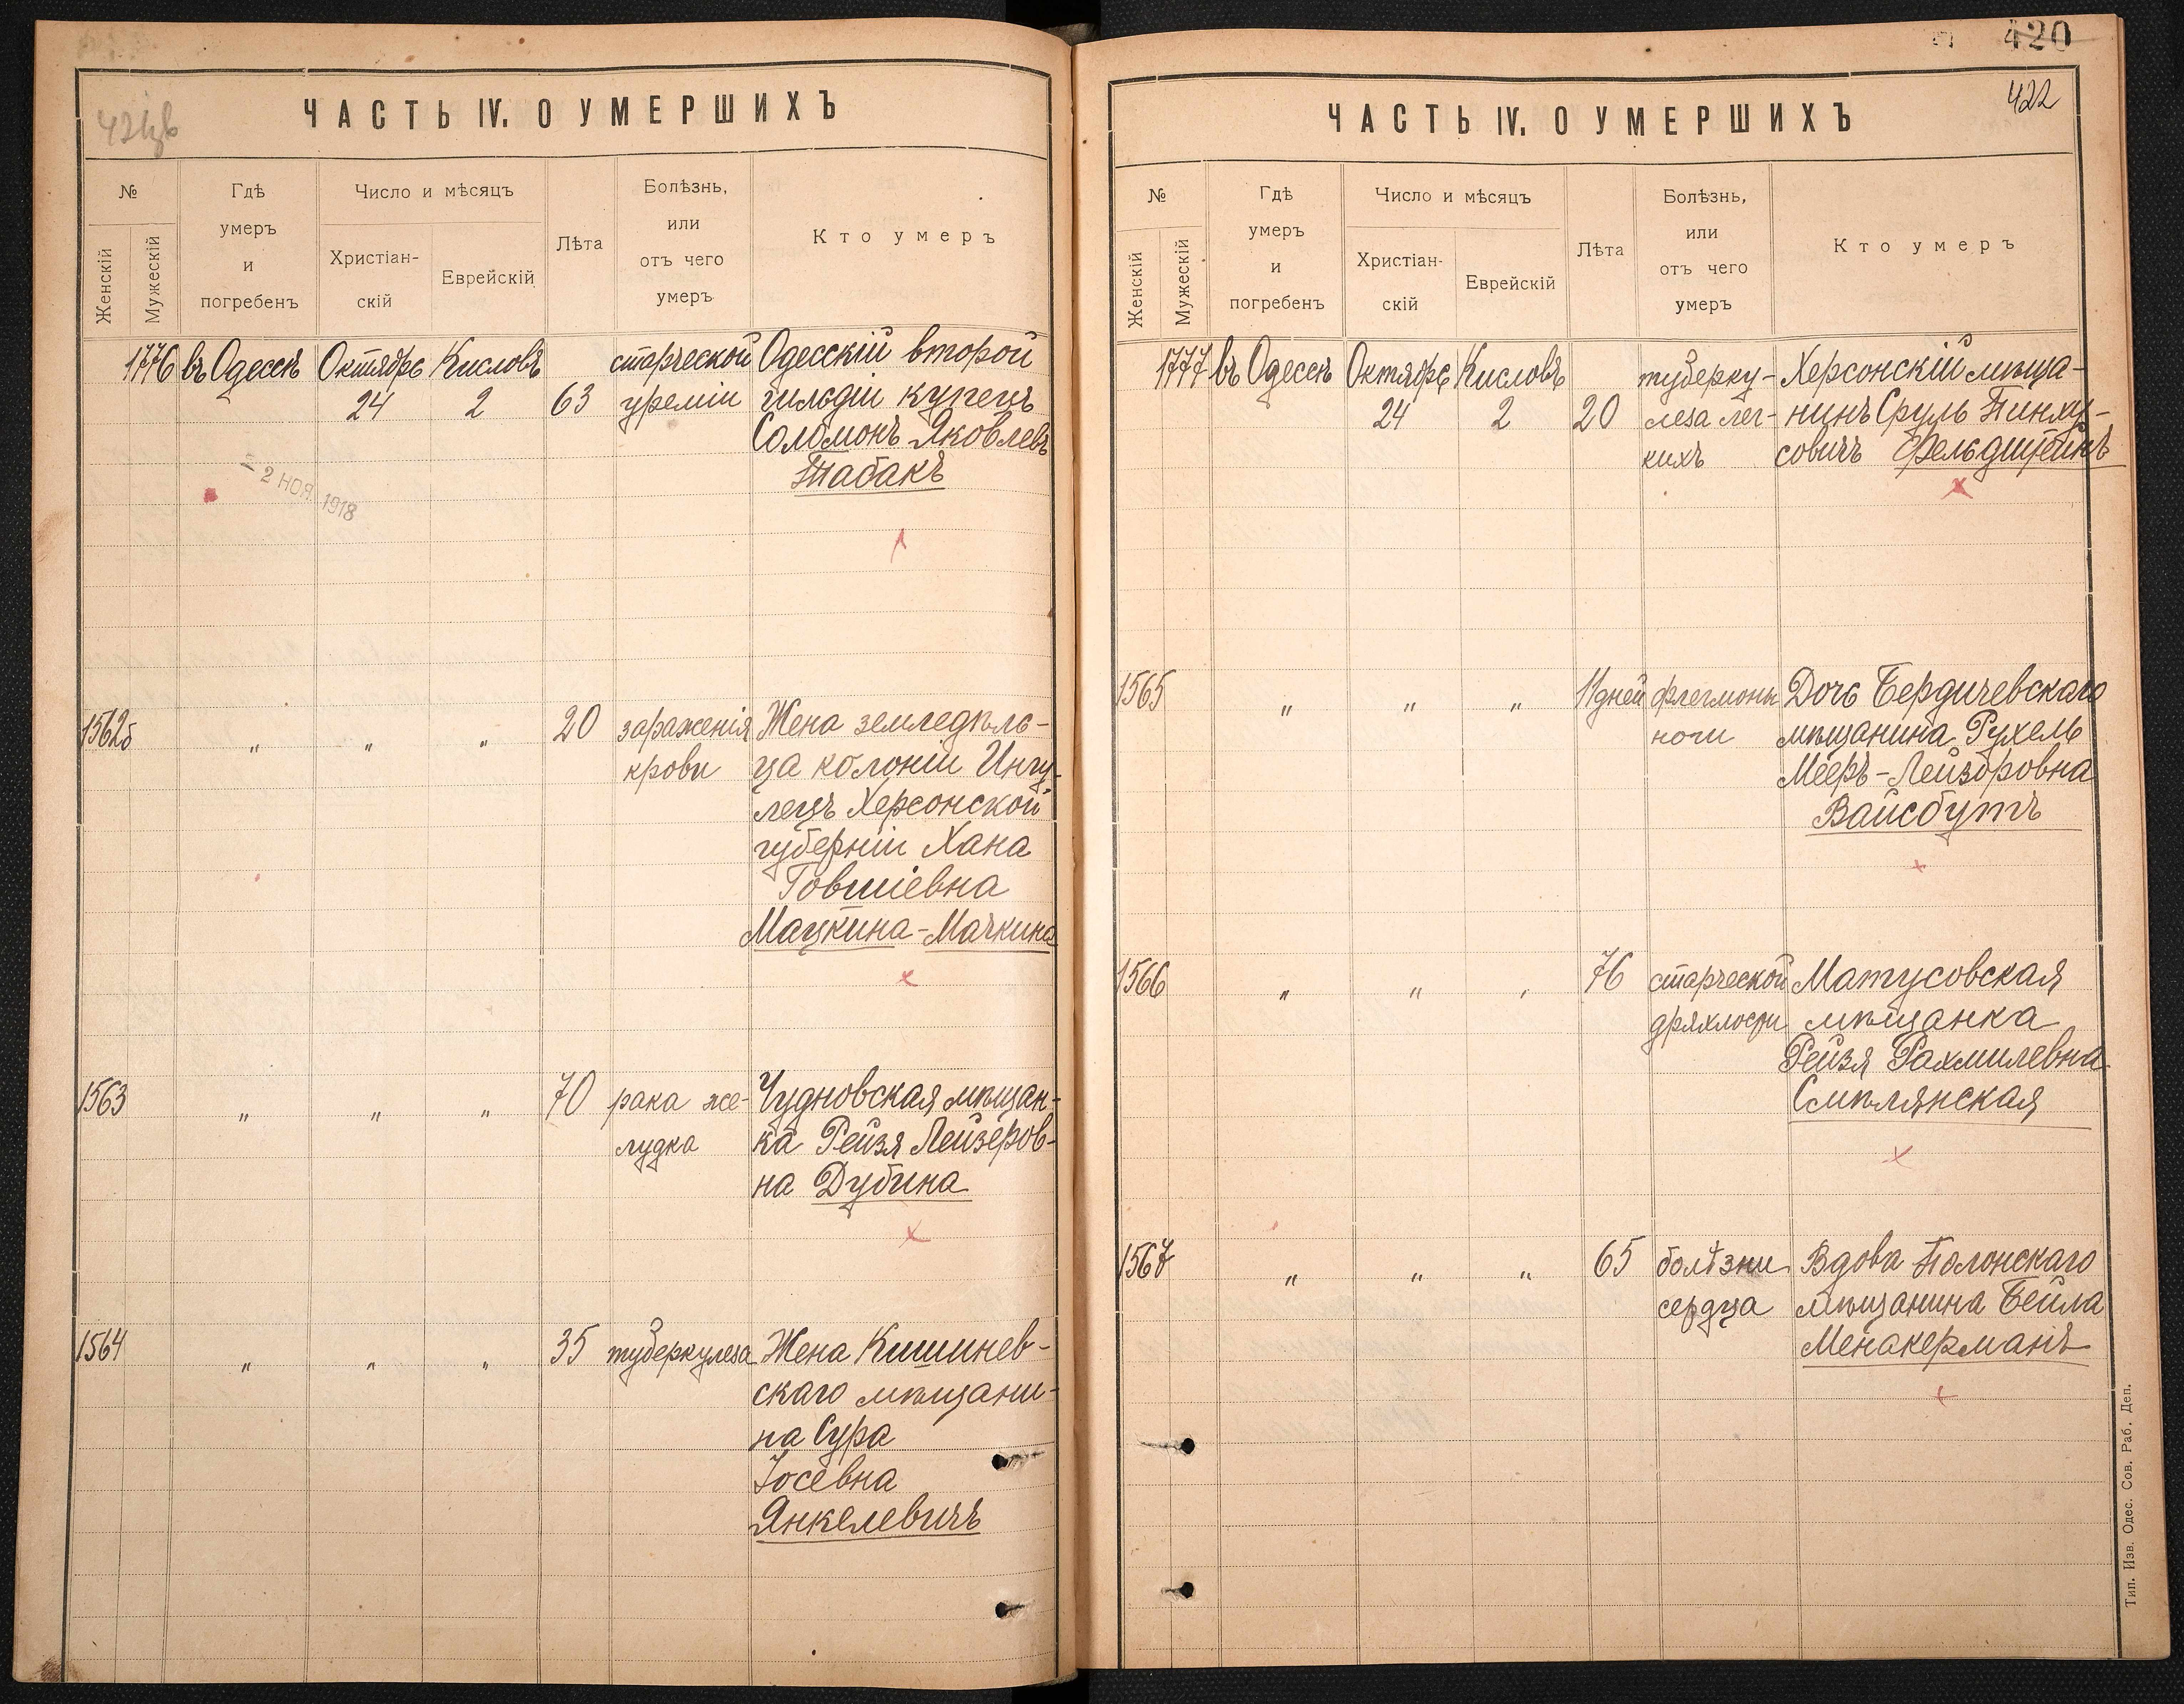 ЧАСТЬ IV. О УМЕРШИХЪ
№
Женскій
Мужескій
Гдѣ
умеръ
и
погребенъ
Число и мѣсяцъ
Христіан-
скій
Еврейскій
Лѣта
Болѣзнь,
или
отъ чего
умеръ
Кто умеръ
1776 въ Одессѣ Октябрь Кисловъ старческой Одесскій второй
24 2 63 уреміи гильдіи купецъ
Соломонъ Яковлевъ
Табакъ
2 НОЯ. 1918
1562б " " " 20 зараженія Жена земледѣль-
крови ца колоніи Ингу-
лецъ Херсонской
губерніи Хана
Говшіевна
Мацкина-Мачкина
1563 " " " 70 рака же- Чудновская мѣщан-
лудка ка Рейзя Лейзеров-
на Дубина
1564 " " " 35 туберкулеза Жена Кишинев-
скаго мѣщани-
на Сура
Іосевна
Янкелевичъ
420
422
ЧАСТЬ IV. О УМЕРШИХЪ
№
Женскій
Мужескій
Гдѣ
умеръ
и
погребенъ
Число и мѣсяцъ
Христіан-
скій
Еврейскій
Лѣта
Болѣзнь,
или
отъ чего
умеръ
Кто умеръ
1777 въ Одессѣ Октябрь Кисловъ туберку- Херсонскій мѣща-
24 2 20 леза лег- нинъ Сруль Пинху-
кихъ совичъ Фельдштейнъ
1565 " " " 11 дней флегмоны Дочь Бердичевскаго
ноги мѣщанина Рухель
Мееръ-Лейзоровна
Вайсбутъ
1566 " " " 76 старческой Матусовская
дряхлости мѣщанка
Рейзя Рахмилевна
Смѣлянская
1567 " " " 65 болѣзни Вдова Полонскаго
сердца мѣщанина Бейла
Менакерманъ
Тип. Изв. Одес. Сов. Раб. Деп.